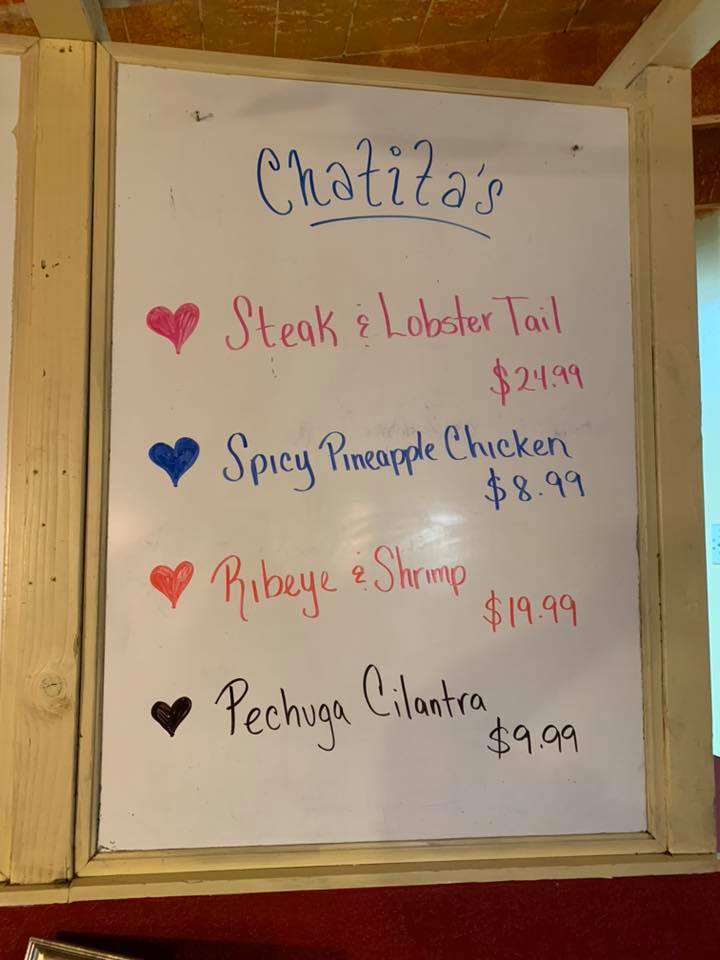 Chatita's
Steak & Lobster Tail
$24.99
Spicy Pineapple Chicken
$8.99
Ribeye & Shrimp
$19.99
Pechuga Cilantra
$9.99